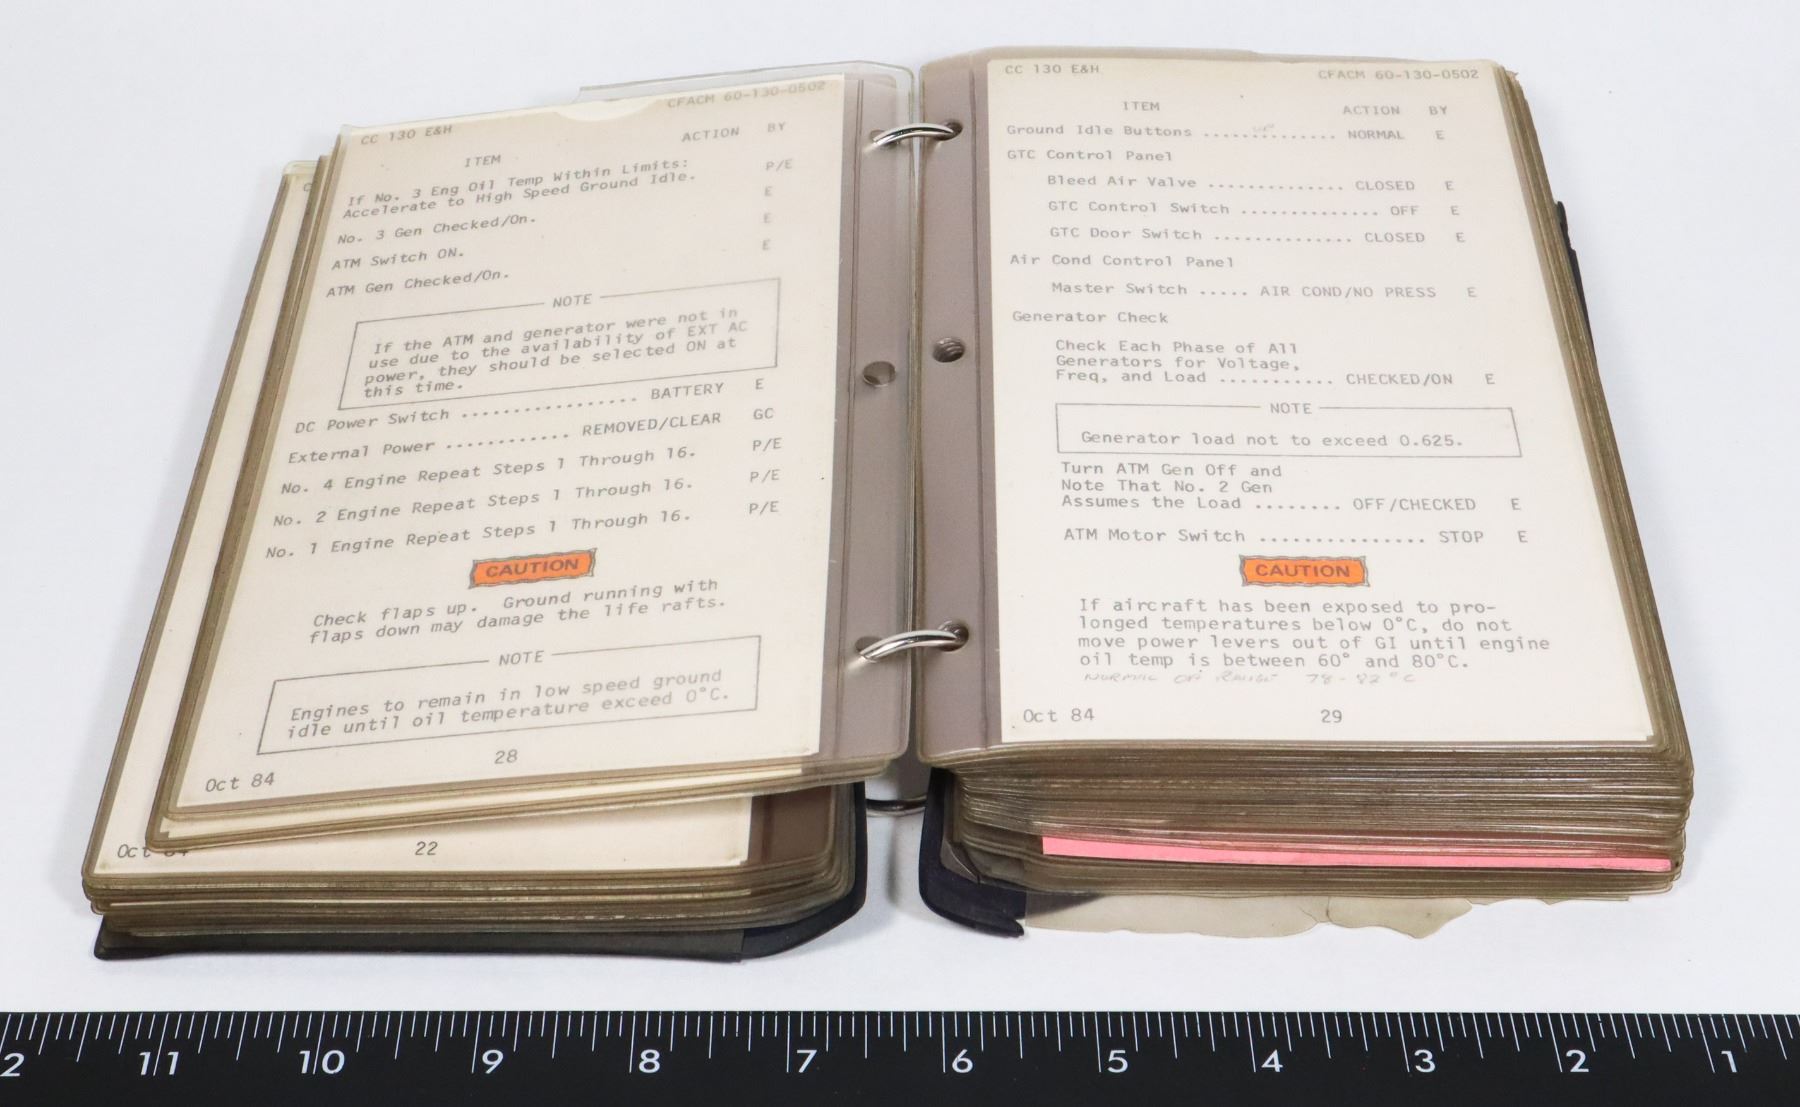 CC 130 E&H CFACM 60-130-0502
ITEM ACTION BY
If No. 3 Eng Oil Temp Within Limits: P/E
Accelerate to High Speed Ground Idle.
No. 3 Gen Checked/On. E
ATM Switch ON. E
ATM Gen Checked/On. E
NOTE
If the ATM and generator were not in
use due to the availability of EXT AC
power, they should be selected ON at
this time.
DC Power Switch ................. BATTERY E
External Power ............ REMOVED/CLEAR GC
No. 4 Engine Repeat Steps 1 Through 16. P/E
No. 2 Engine Repeat Steps 1 Through 16. P/E
No. 1 Engine Repeat Steps 1 Through 16. P/E
CAUTION
Check flaps up. Ground running with
flaps down may damage the life rafts.
NOTE
Engines to remain in low speed ground
idle until oil temperature exceed 0°C.
28
Oct 84
Oct 84 22
CC 130 E&H CFACM 60-130-0502
ITEM ACTION BY
Ground Idle Buttons .............. NORMAL E
GTC Control Panel
Bleed Air Valve .............. CLOSED E
GTC Control Switch .............. OFF E
GTC Door Switch .............. CLOSED E
Air Cond Control Panel
Master Switch ..... AIR COND/NO PRESS E
Generator Check
Check Each Phase of All
Generators for Voltage,
Freq, and Load ........... CHECKED/ON E
NOTE
Generator load not to exceed 0.625.
Turn ATM Gen Off and
Note That No. 2 Gen
Assumes the Load ........ OFF/CHECKED E
ATM Motor Switch ............... STOP E
CAUTION
If aircraft has been exposed to pro-
longed temperatures below 0°C, do not
move power levers out of GI until engine
oil temp is between 60° and 80°C.
NORMAL OP RANGE 78-82°C
Oct 84 29
2 11 10 9 8 7 6 5 4 3 2 1